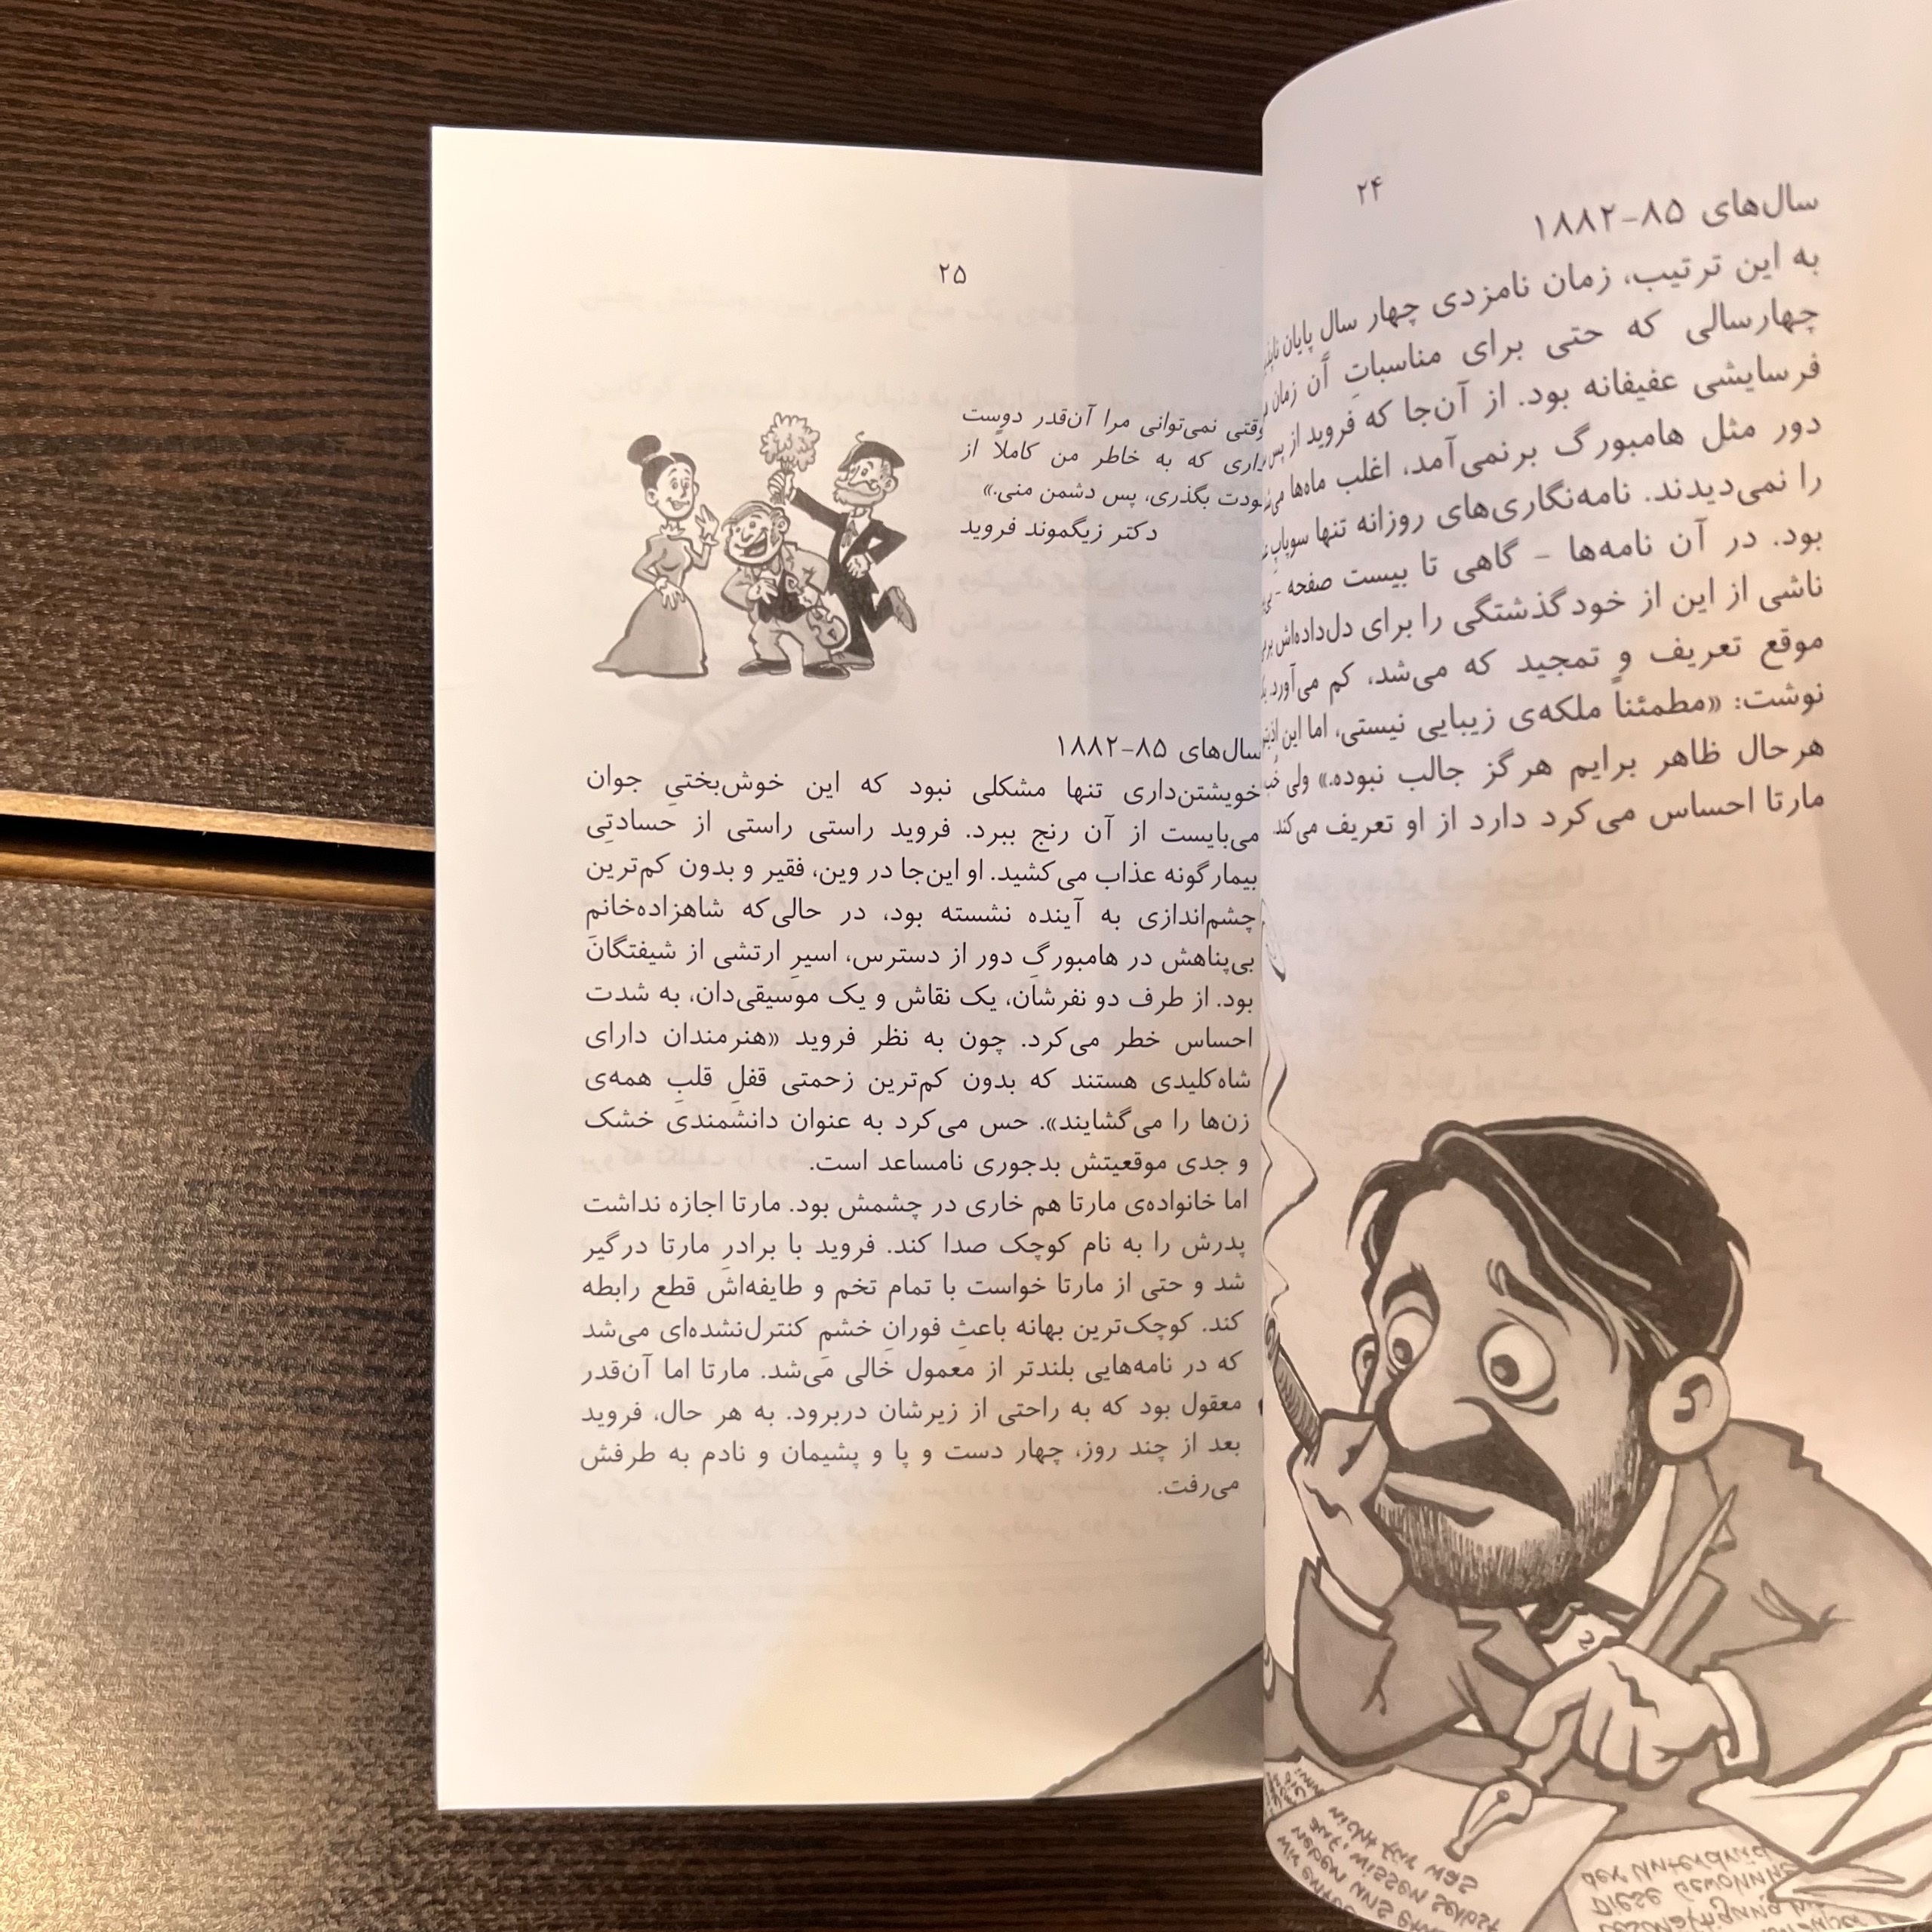 ۲۴
سال‌های ۸۵-۱۸۸۲
به این ترتیب، زمان نامزدی چهار سال پایان
چهارسالی که حتی برای مناسباتِ آن زمان
فرسایشی عفیفانه بود. از آن‌جا که فروید از پس
دور مثل هامبورگ برنمی‌آمد، اغلب ماه‌ها
را نمی‌دیدند. نامه‌نگاری‌های روزانه تنها سوپاپ
بود. در آن نامه‌ها - گاهی تا بیست صفحه -
ناشی از این از خودگذشتگی را برای دل‌داده‌اش
موقع تعریف و تمجید که می‌شد، کم می‌آورد.
نوشت: «مطمئناً ملکه‌ی زیبایی نیستی، اما این
هرحال ظاهر برایم هرگز جالب نبوده.» ولی خب
مارتا احساس می‌کرد دارد از او تعریف می‌کند.
۲۵
وقتی نمی‌توانی مرا آن‌قدر دوست
داری که به خاطر من کاملاً از
خودت بگذری، پس دشمن منی.»
دکتر زیگموند فروید
سال‌های ۸۵-۱۸۸۲
خویشتن‌داری تنها مشکلی نبود که این خوش‌بختیِ جوان
می‌بایست از آن رنج ببرد. فروید راستی راستی از حسادتِی
بیمارگونه عذاب می‌کشید. او این‌جا در وین، فقیر و بدون کم‌ترین
چشم‌اندازی به آینده نشسته بود، در حالی‌که شاهزاده‌خانمِ
بی‌پناهش در هامبورگِ دور از دسترس، اسیرِ ارتشی از شیفتگان
بود. از طرف دو نفرشان، یک نقاش و یک موسیقی‌دان، به شدت
احساس خطر می‌کرد. چون به نظر فروید «هنرمندان دارای
شاه‌کلیدی هستند که بدون کم‌ترین زحمتی قفلِ قلبِ همه‌ی
زن‌ها را می‌گشایند». حس می‌کرد به عنوان دانشمندی خشک
و جدی موقعیتش بدجوری نامساعد است.
اما خانواده‌ی مارتا هم خاری در چشمش بود. مارتا اجازه نداشت
پدرش را به نام کوچک صدا کند. فروید با برادرِ مارتا درگیر
شد و حتی از مارتا خواست با تمام تخم و طایفه‌اش قطع رابطه
کند. کوچک‌ترین بهانه باعثِ فورانِ خشمِ کنترل‌نشده‌ای می‌شد
که در نامه‌هایی بلندتر از معمول خالی می‌شد. مارتا اما آن‌قدر
معقول بود که به راحتی از زیرشان دربرود. به هر حال، فروید
بعد از چند روز، چهار دست و پا و پشیمان و نادم به طرفش
می‌رفت.